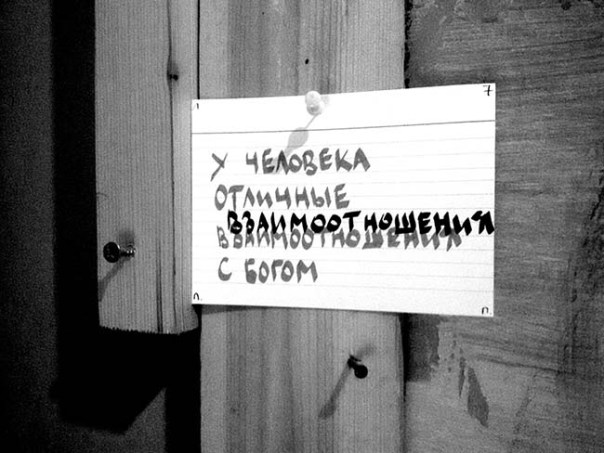 У ЧЕЛОВЕКА
ОТЛИЧНЫЕ
ВЗАИМООТНОШЕНИЯ
ВЗАИМООТНОШЕНИЯ
С БОГОМ